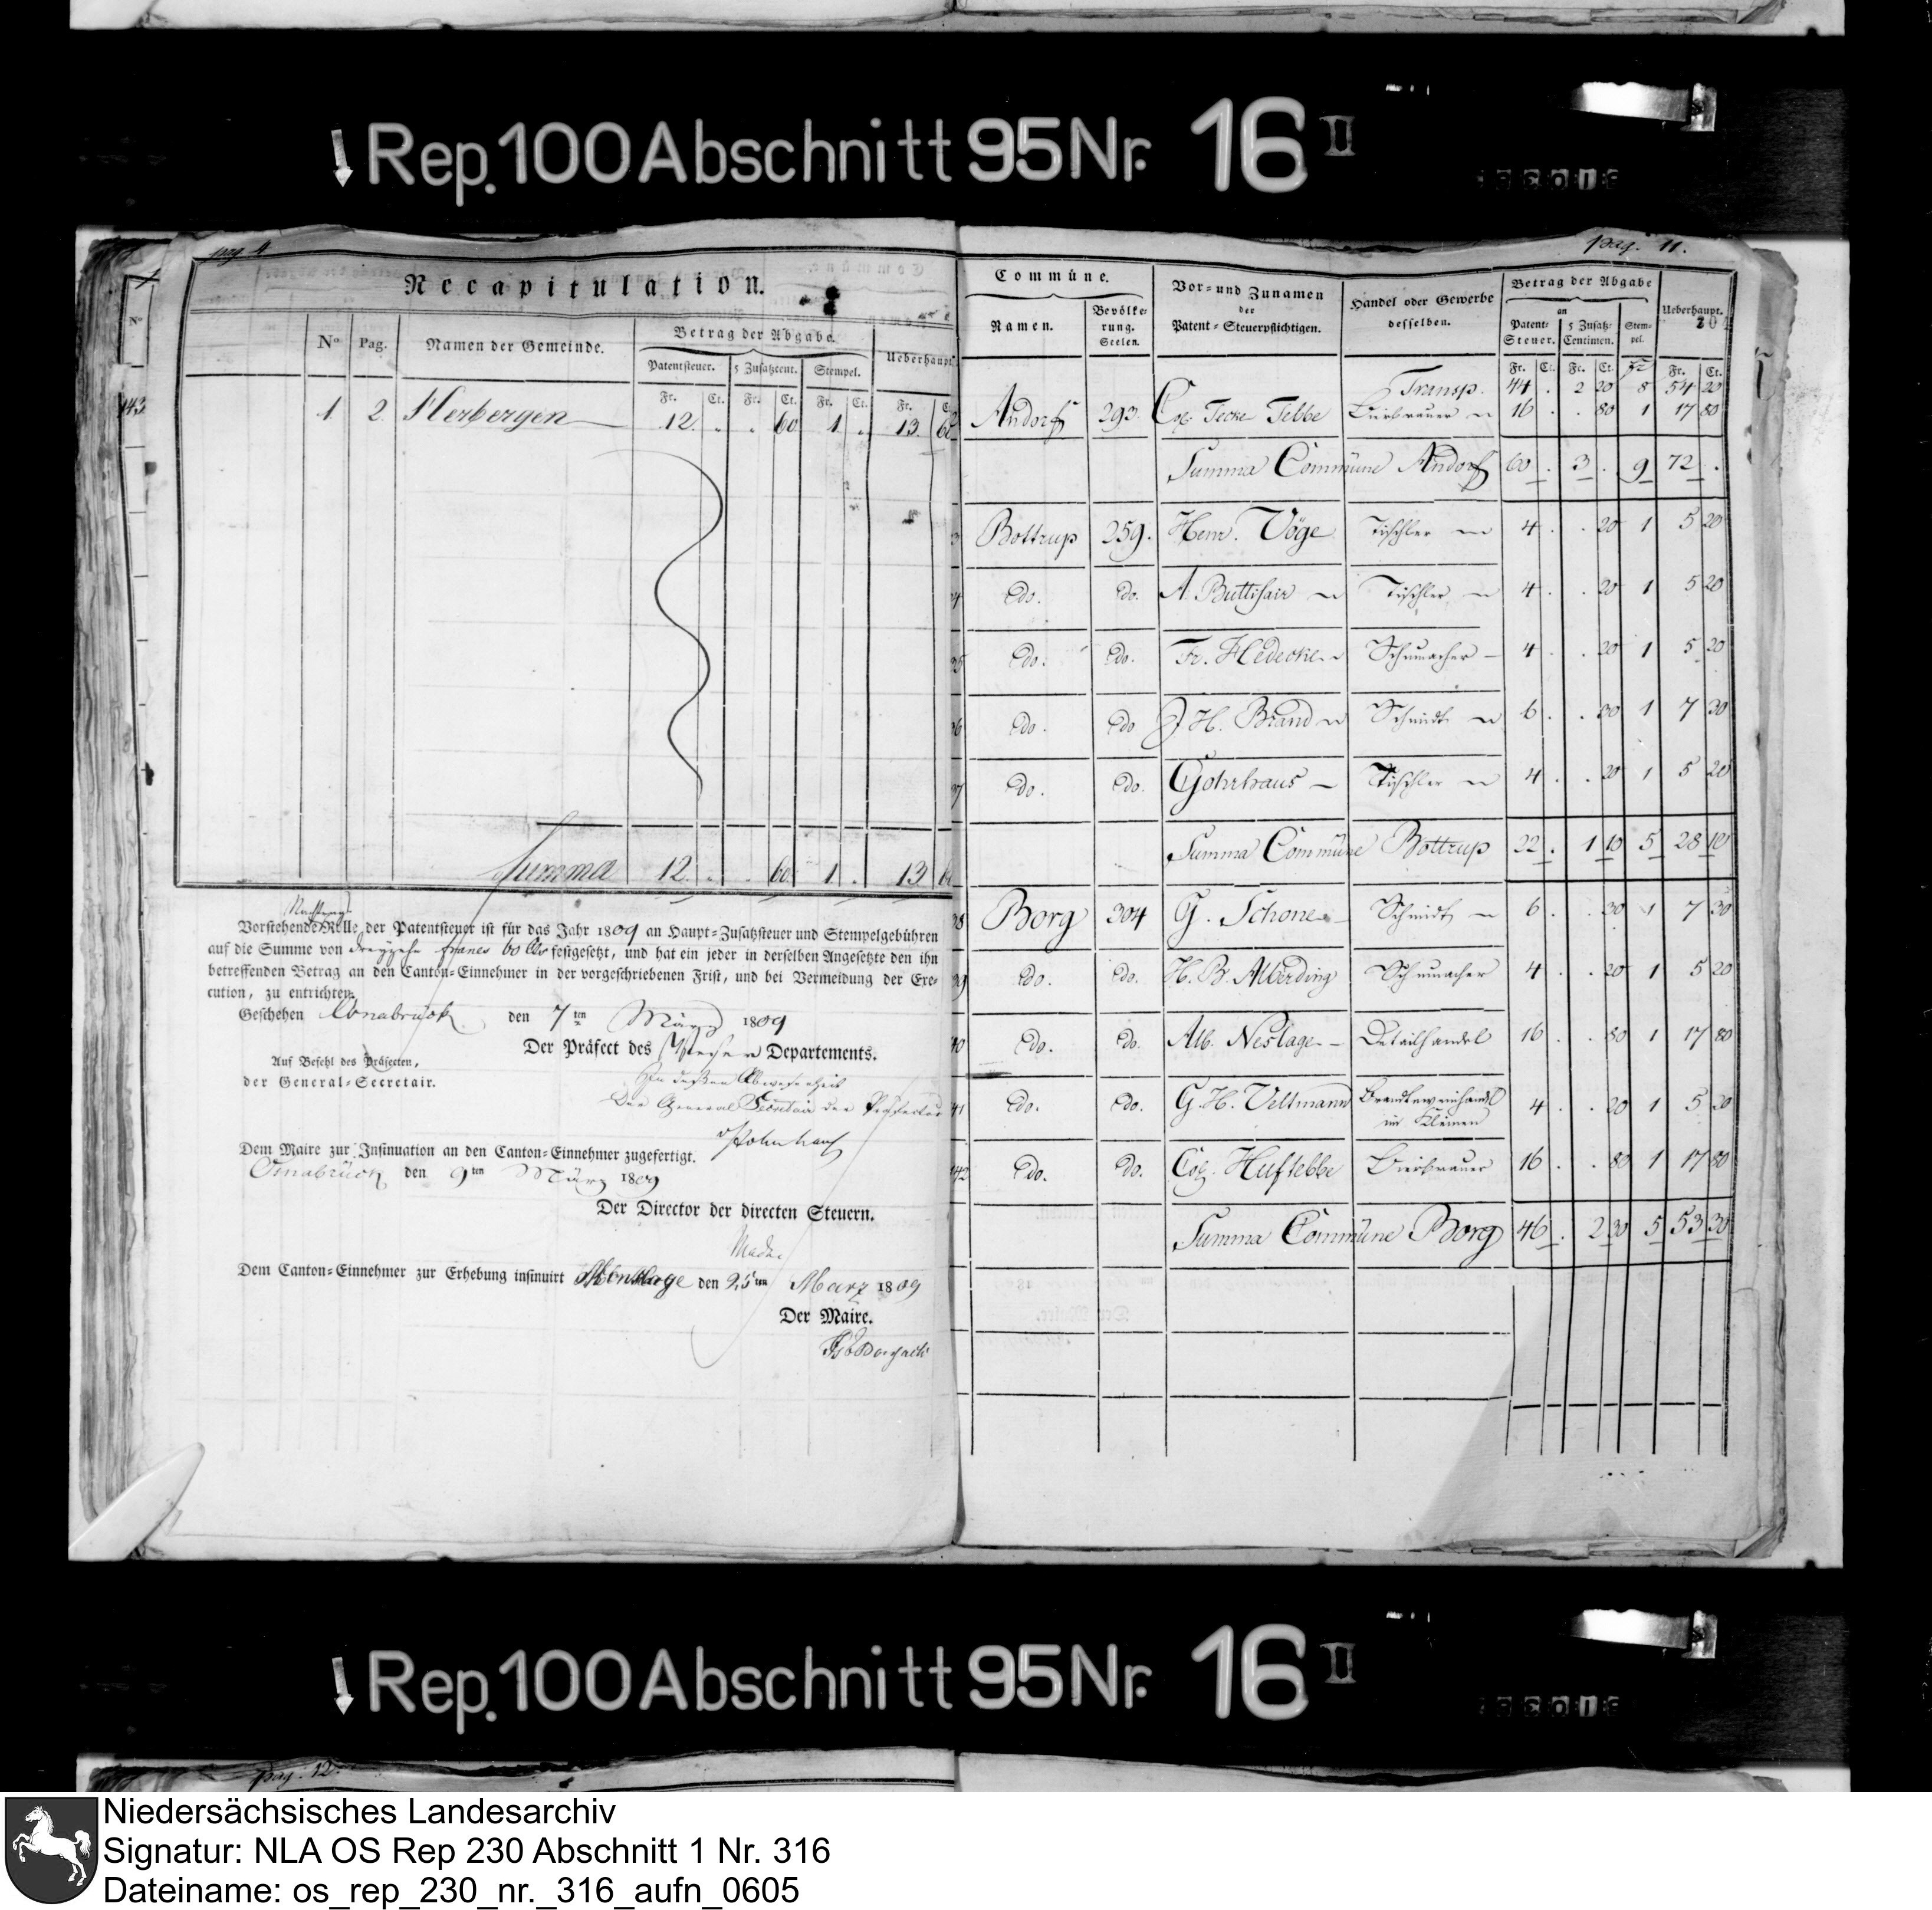 Rep. 100 Abschnitt 95 Nr. 16 II
pag. 4
Recapitulation.
No Pag. Namen der Gemeinde. Betrag der Abgabe. Ueberhaupt
Patentsteuer. 5 Zusatzcent. Stempel.
Fr. Ct. Fr. Ct. Fr. Ct. Fr.
1. 2. Herbergen 12. . . 60 1. . 13. 60
Summa 12. . . 60. 1 . 13
Vorstehende Rolle der Patentsteuer ist für das Jahr 1809 an Haupt-Zusatzsteuer und Stempelgebühren
auf die Summe von dreyzehn francs 60 Cts festgesetzt, und hat ein jeder in derselben Angesetzte den ihn
betreffenden Betrag an den Canton-Einnehmer in der vorgeschriebenen Frist, und bei Vermeidung der Exe-
cution, zu entrichten.
Geschehen Osnabrück den 7ten März 1809
Der Präfect des Weser Departements.
Auf Befehl des Präfecten,
der General-Secretair.
In dessen Abwesenheit
Der General Secretair der Präfectur
Dem Maire zur Insinuation an den Canton-Einnehmer zugefertigt.
Osnabrück den 9ten März 1809
Der Director der directen Steuern.
Dem Canton-Einnehmer zur Erhebung insinuirt Menslage den 25ten Marz 1809
Der Maire.
pag. 11.
Commüne. Vor- und Zunamen der Patent-Steuerpflichtigen. Handel oder Gewerbe desselben. Betrag der Abgabe Ueberhaupt.
Namen. Bevölkerung. Seelen. an Patent-Steuer. 5 Zusatz-Centimen. Stempel.
Fr. Ct. Fr. Ct. Fr. Fr. Ct.
Transp. 44 . 2 20 8 54 20
Andorf 293. Col. Tecke Tebbe Bierbrauer 16 . . 80 1 17 80
Summa Commüne Andorf 60 . 3 . 9 72 .
Bottrup 259. Henr. Vöge Tischler 4 . . 20 1 5 20
do. do. A. Tischler 4 . . 20 1 5 20
do. do. Fr. Hedecke Schumacher 4 . . 20 1 5 20
do. do J H. Brand Schmidt 6 . . 30 1 7 30
do. do. Gohrhaus Tischler 4 . . 20 1 5 20
Summa Commüne Bottrup 22 . 1 10 5 28 10
Borg 304 G. Schone Schmidt 6 . . 30 1 7 30
do. do. H. B. Alberding Schumacher 4 . . 20 1 5 20
do. do. Alb. Neslage Detailhandel 16 . . 80 1 17 80
do. do. G. H. Veltmann Brandtweinhandl im Kleinen 4 . . 20 1 5 20
do. do. Col. Huftebbe Bierbrauer 16 . . 80 1 17 80
Summa Commüne Borg 46 . 2 30 5 53 30
Rep. 100 Abschnitt 95 Nr. 16 II
pag. 12.
Niedersächsisches Landesarchiv
Signatur: NLA OS Rep 230 Abschnitt 1 Nr. 316
Dateiname: os_rep_230_nr._316_aufn_0605